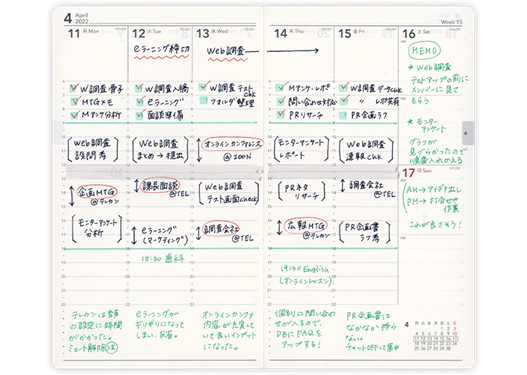 4 April
2022
Week 15
11 月 Mon
12 火 Tue
13 水 Wed
14 木 Thu
15 金 Fri
16 土 Sat
eラーニング締切
Web調査
W調査・骨子
MTGメモ
Mアンケ分析
W調査入稿
eラーニング
面談準備
W調査テストchk
フォルダ整理
Mアンケ・レポ
問い合わせ対応
PRリサーチ
W調査データchk
〃 レポ共有
PR企画ラフ
MEMO
★Web調査
テストアップの前に
メンバーに見て
もらう
★モニター
アンケート
グラフが
見づらかったので
Web調査
設問考
Web調査
まとめ→提出
オンラインカンファレンス
@200N
モニターアンケート
レポート
Web調査
速報chk
17 日 Sun
AM→アイデア出し
PM→打合せ
作業
これが良さそう!
企画MTG
@テレカン
モニターアンケート
分析
課長面談
@TEL
eラーニング
(マーケティング)
Web調査
テスト画面check
調査会社
@TEL
PRネタ
リサーチ
広報MTG
@テレカン
調査会社
@TEL
PR企画書
ラフ考
18:30 歯科
19:30 English
(オンラインレッスン)
テレカンは音声
の設定に時間
がかかった。
eラーニングが
ギリギリになって
しまい、反省。
オンラインカンファ
内容が充実してい
て良いインプット
になった。
個別に問い合わ
せが入るので、
DBにFAQを
アップする!
PR企画書は
なかなか捗らな
い
チャットOFFにして集中
4